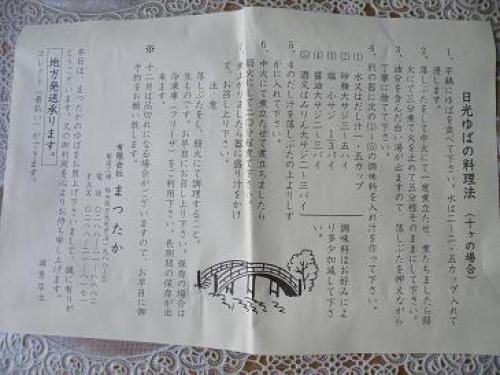 日光ゆばの料理法（十ヶの場合）
1、平鍋にゆばを並べて下さい。水は二～二・五カップ入れて
浸します。
2、落しぶたをして中火にて一度煮立たせ、煮たちましたら弱
火にて三分煮て火を止めて五分程そのままにして下さい。
3、油分を含んだ白い湯が出ますので、落しぶたを押えながら
丁寧に捨てて下さい。
4、別の器に次の(1)～(5)の調味料を入れ汁を作って下さい。
(1) 水又はだし汁一・五カップ
(2) 砂糖大サジ三～五ハイ
(3) 塩 小サジ
(4) 醤油大サジ二～三バイ
(5) 酒又はみりん大サジ二～三バイ
調味料はお好みによ
り多少加減して下さ
い。
5、4のだし汁を落しぶたの上よりしず
かに入れて下さい。
6、中火にて煮立たせて煮立ちましたら
弱火にして二十分程煮て下さい。
7、煮上がりましたら器に盛り汁をかけ
て、お召し上り下さい。
注意
落しぶたをし、弱火にて調理すること。
生ものです。お早目にお召し上り下さい。保存の場合は
冷凍庫（フリーザ）をご利用下さい。長期間の保存が出
来ます。
※ 十二月は品切れになる場合がございますので、お早目に御
予約をお願い致します。
有限会社 まつたか
電話
FAX
本日は、まつたかのゆばをお買上げ下さいまして、誠に有りが
とうございます。又の御利用を心よりお待ち申し上げます。
地方発送承ります。
コレクト（着払い）ができます。
誠意店主